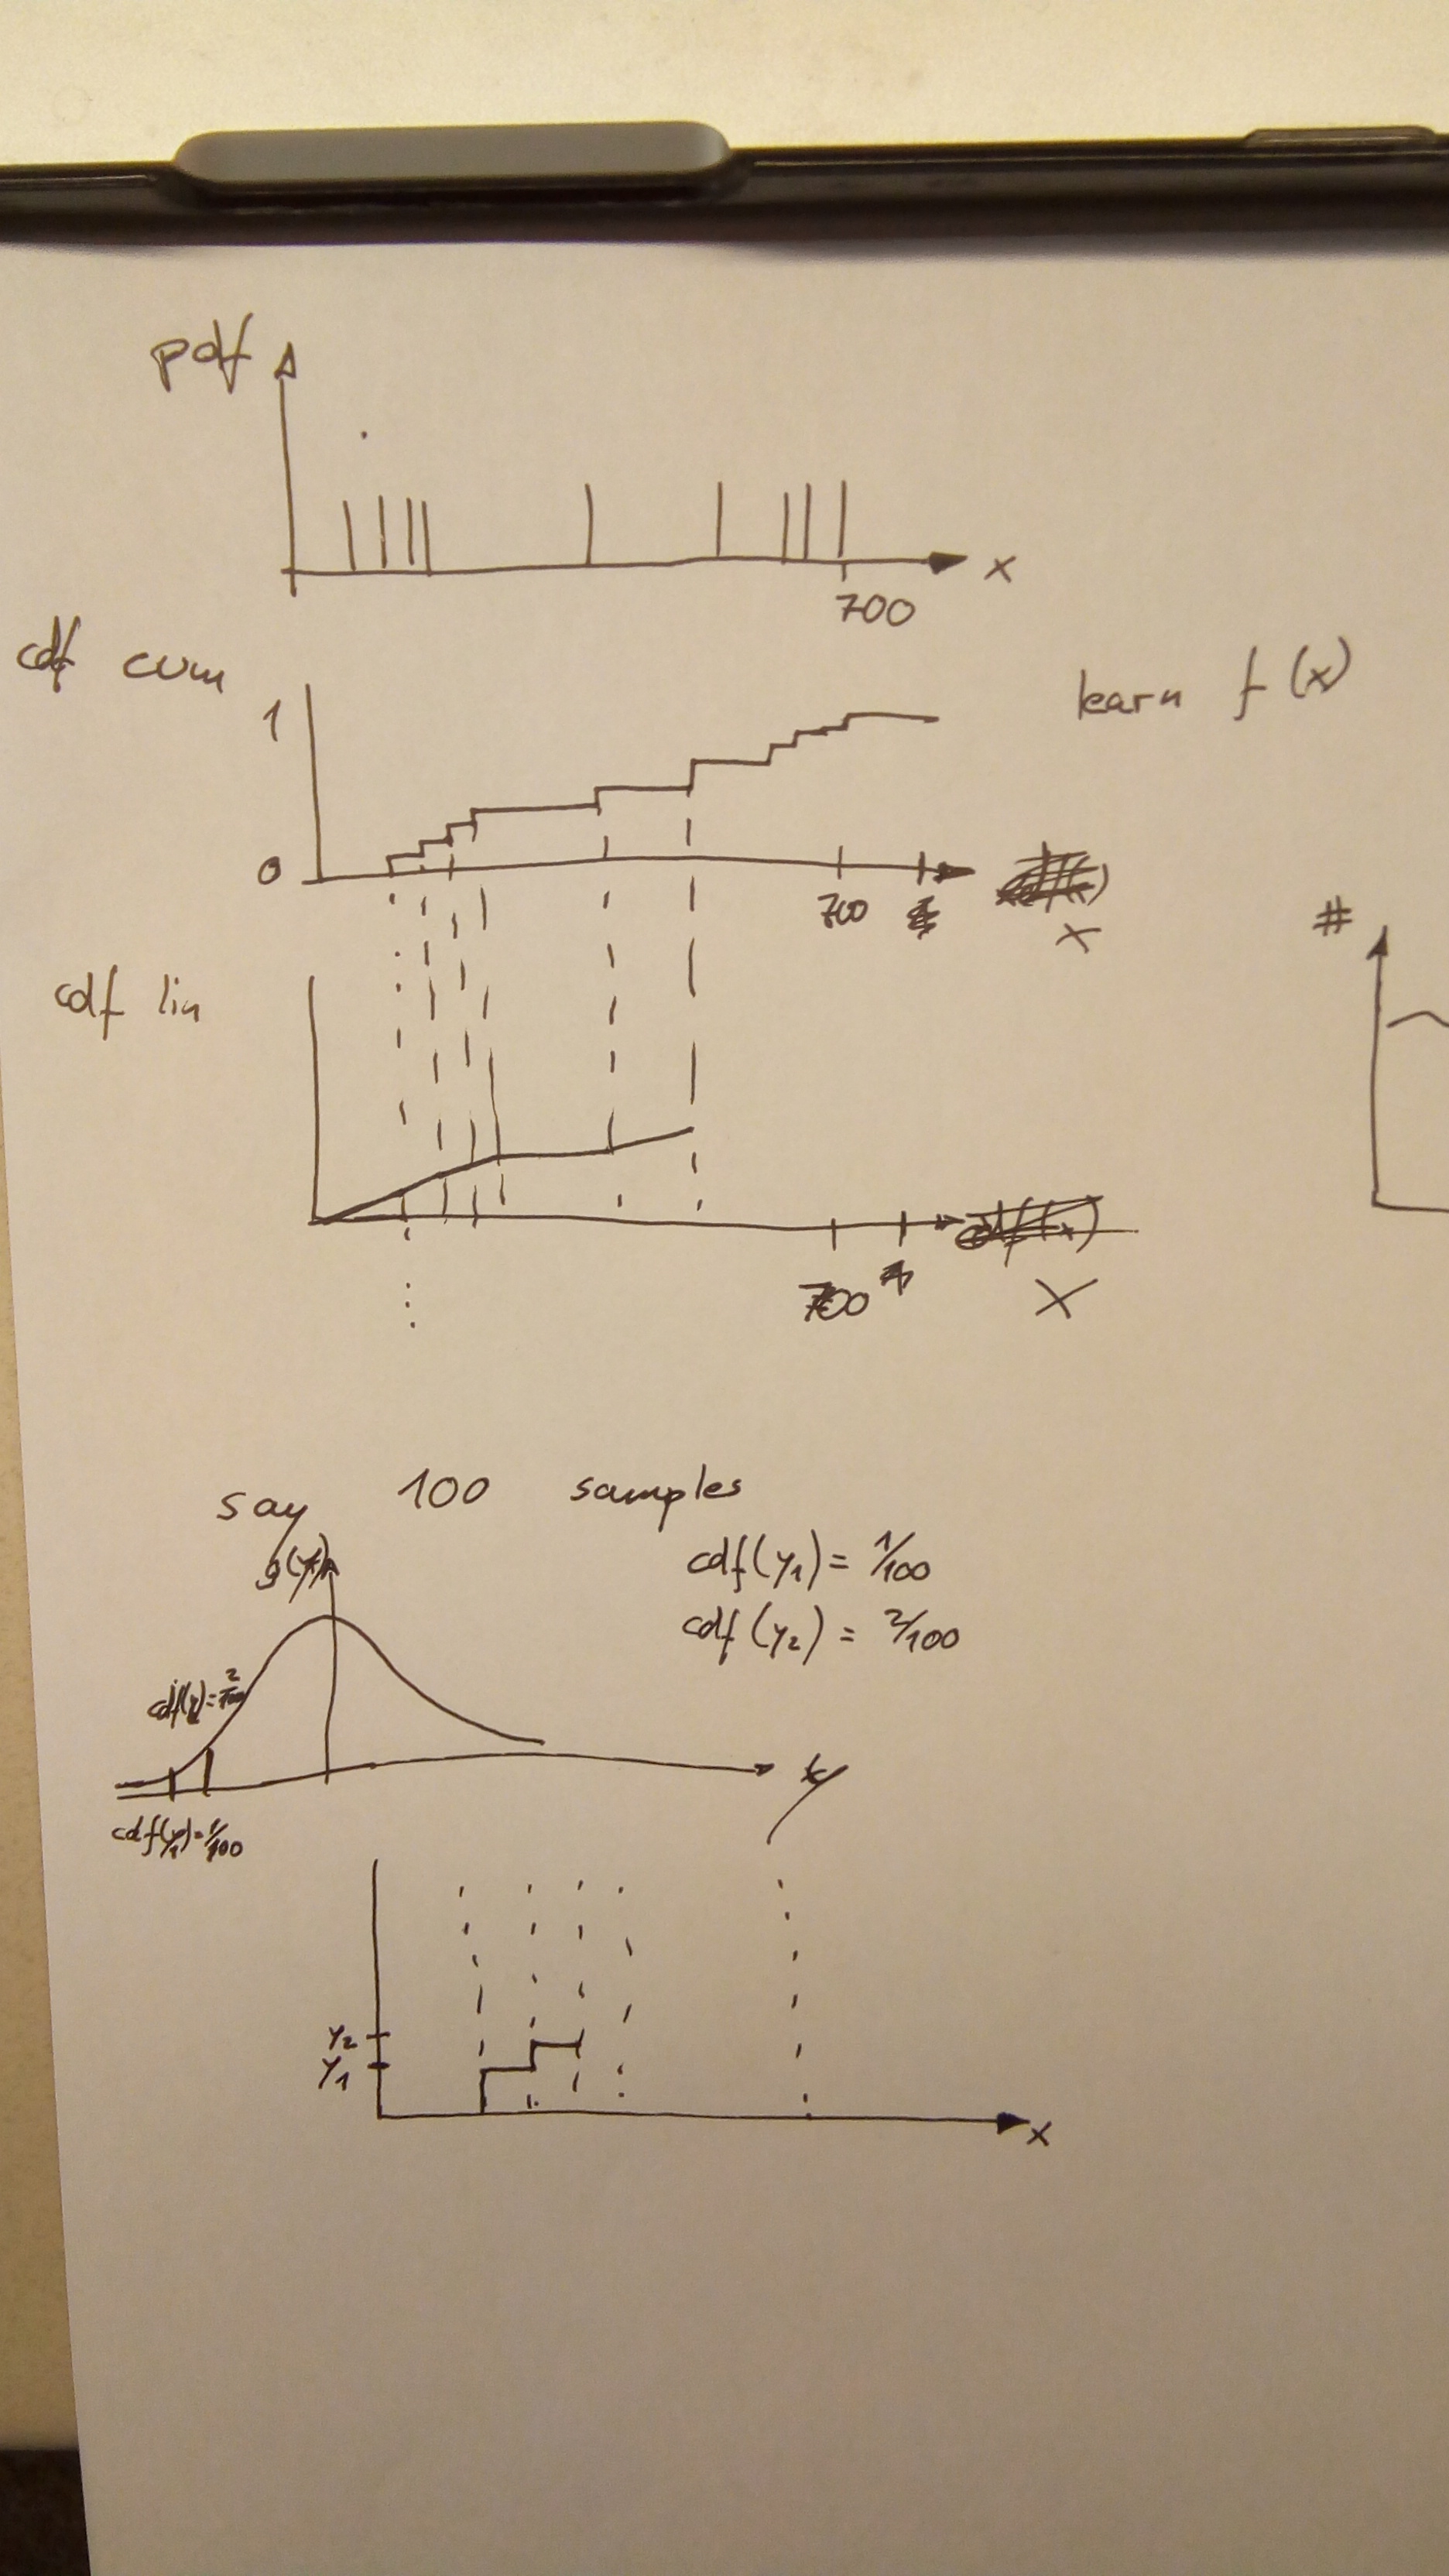 pdf
x
700
cdf cum
learn f(x)
1
0
700
x
#
cdf lin
700
x
say 100 samples
g(y)
cdf(y1) = 1/100
cdf(y2) = 2/100
cdf(y2)=2/100
y
cdf(y1)=1/100
y2
y1
x